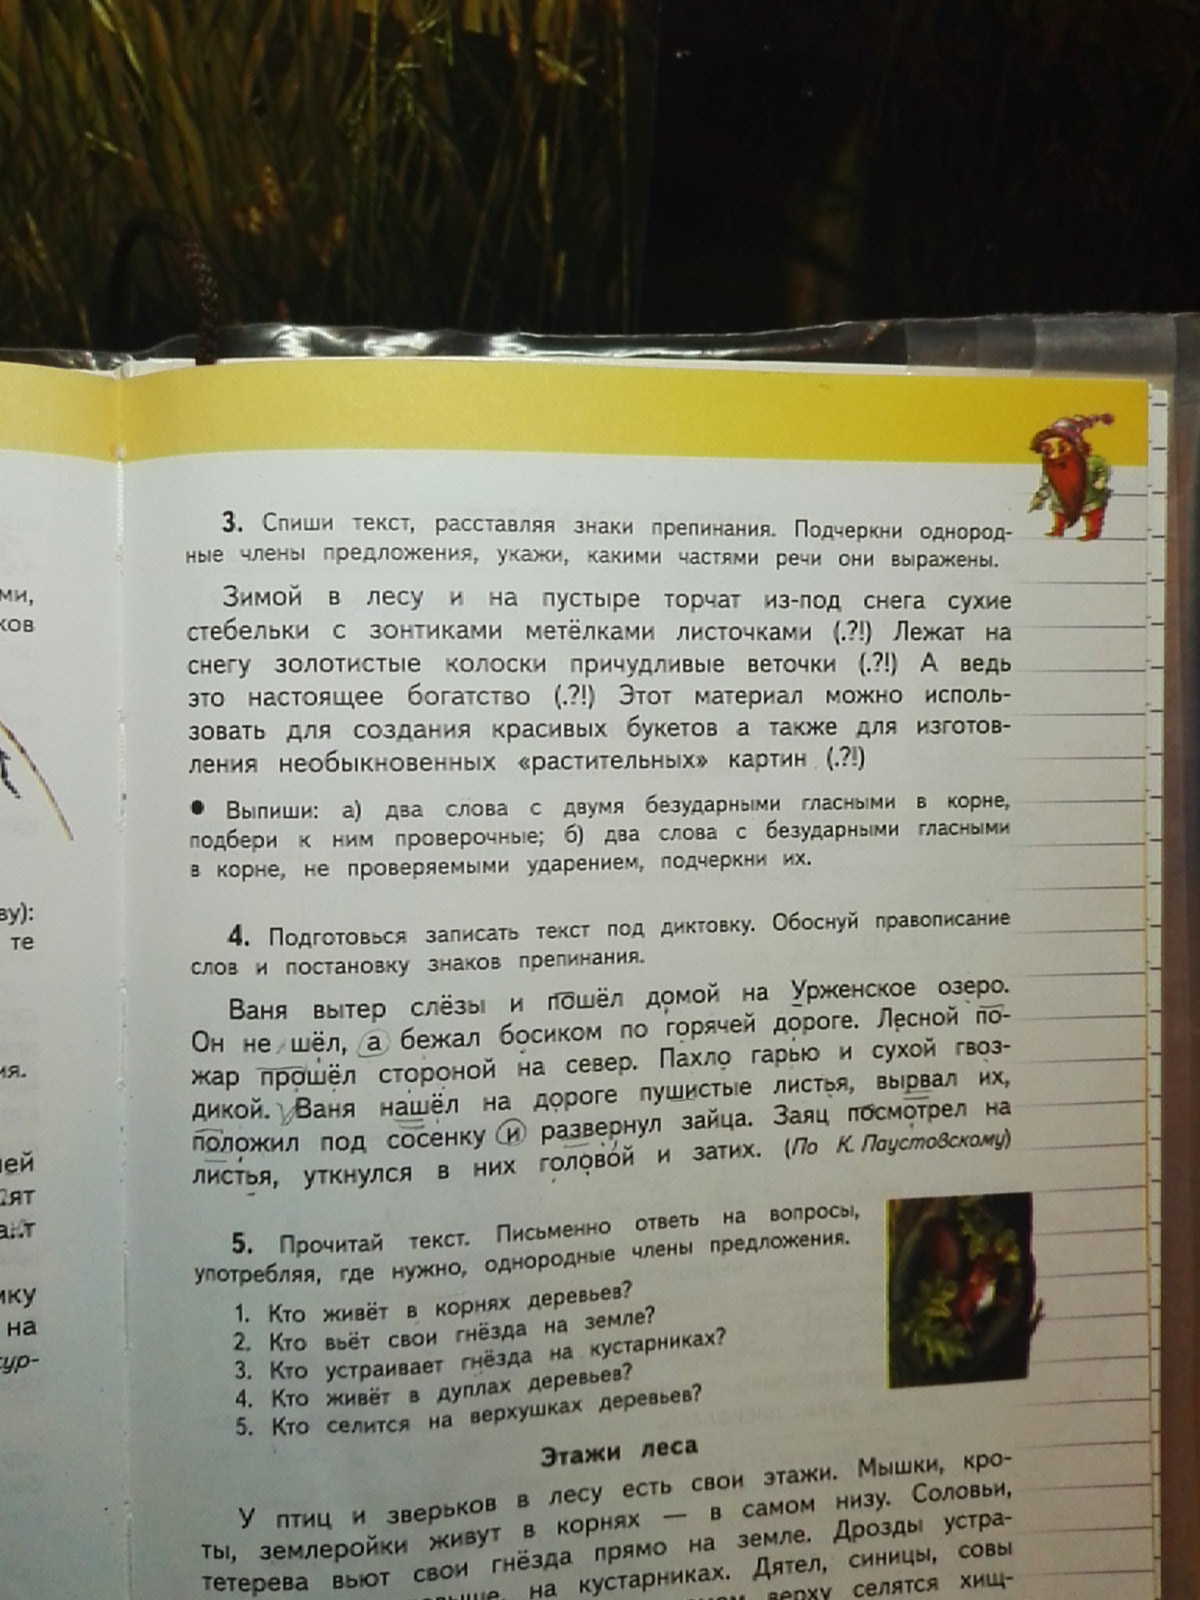 3. Спиши текст, расставляя знаки препинания. Подчеркни однород-
ные члены предложения, укажи, какими частями речи они выражены.
Зимой в лесу и на пустыре торчат из-под снега сухие
стебельки с зонтиками метёлками листочками (.?!) Лежат на
снегу золотистые колоски причудливые веточки (.?!) А ведь
это настоящее богатство (.?!) Этот материал можно исполь-
зовать для создания красивых букетов а также для изготов-
ления необыкновенных «растительных» картин (.?!)
● Выпиши: а) два слова с двумя безударными гласными в корне,
подбери к ним проверочные; б) два слова с безударными гласными
в корне, не проверяемыми ударением, подчеркни их.
4. Подготовься записать текст под диктовку. Обоснуй правописание
слов и постановку знаков препинания.
Ваня вытер слёзы и пошёл домой на Урженское озеро.
Он не шёл, а бежал босиком по горячей дороге. Лесной по-
жар прошёл стороной на север. Пахло гарью и сухой гвоз-
дикой. Ваня нашёл на дороге пушистые листья, вырвал их,
положил под сосенку и развернул зайца. Заяц посмотрел на
листья, уткнулся в них головой и затих. (По К. Паустовскому)
5. Прочитай текст. Письменно ответь на вопросы,
употребляя, где нужно, однородные члены предложения.
1. Кто живёт в корнях деревьев?
2. Кто вьёт свои гнёзда на земле?
3. Кто устраивает гнёзда на кустарниках?
4. Кто живёт в дуплах деревьев?
5. Кто селится на верхушках деревьев?
Этажи леса
У птиц и зверьков в лесу есть свои этажи. Мышки, кро-
ты, землеройки живут в корнях — в самом низу. Соловьи,
тетерева вьют свои гнёзда прямо на земле. Дрозды устра-
на кустарниках. Дятел, синицы, совы
верху селятся хищ-
ми,
ков
ия.
ву):
те
ей
ят
ику
на
сур-